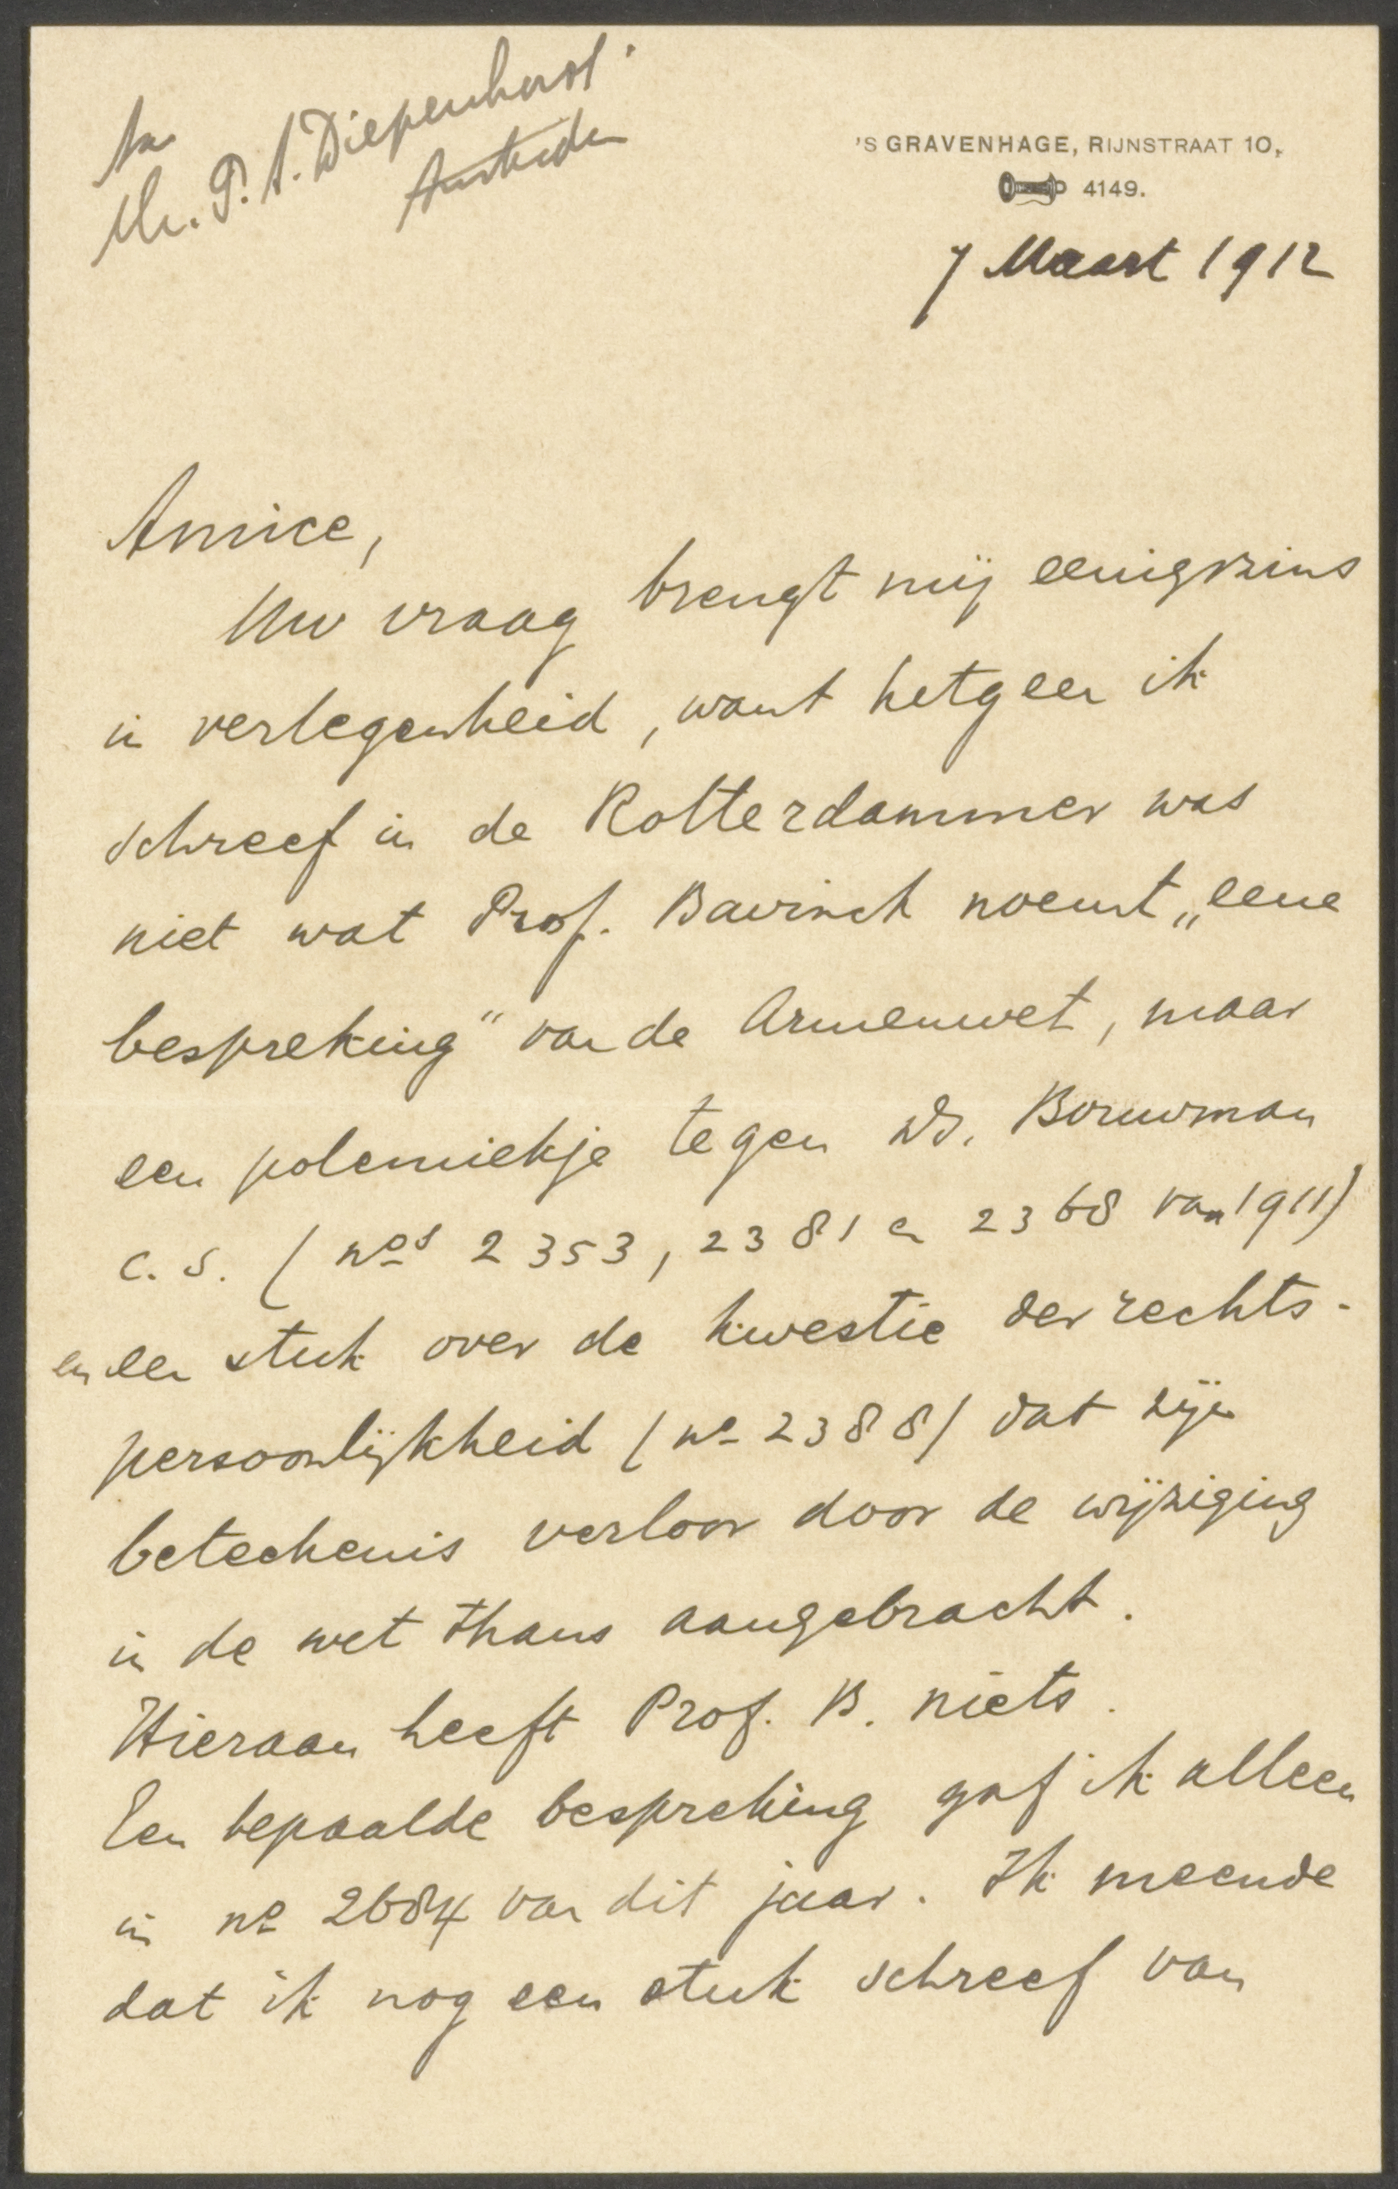 Aan
Mr. P. A. Diepenhorst.
Amsterdam
'S GRAVENHAGE, RIJNSTRAAT 10,
4149.
7 Maart 1912
Amice,
Uw vraag brengt mij eenigszins
in verlegenheid, want hetgeen ik
schreef in de Rotterdammer was
niet wat Prof. Bavinck noemt „eene
bespreking" van de Armenwet, maar
een polemiekje tegen Ds. Bouwman
c. s. (nos 2353, 2381 en 2368 van 1911)
en een stuk over de kwestie der rechts-
persoonlijkheid (no 2388) dat zijn
beteekenis verloor door de wijziging
in de wet thans aangebracht.
Hieraan heeft Prof. B. niets.
Een bepaalde bespreking gaf ik alleen
in no 2684 van dit jaar. Ik meende
dat ik nog een stuk schreef van